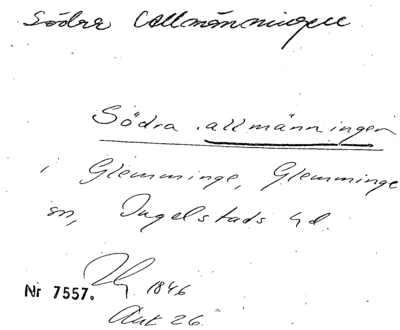 Södra Allmänningen
Södra allmänningen
i Glemminge, Glemminge
sn, Ingelstads hd.
1846
Nr 7557.
Akt 26.